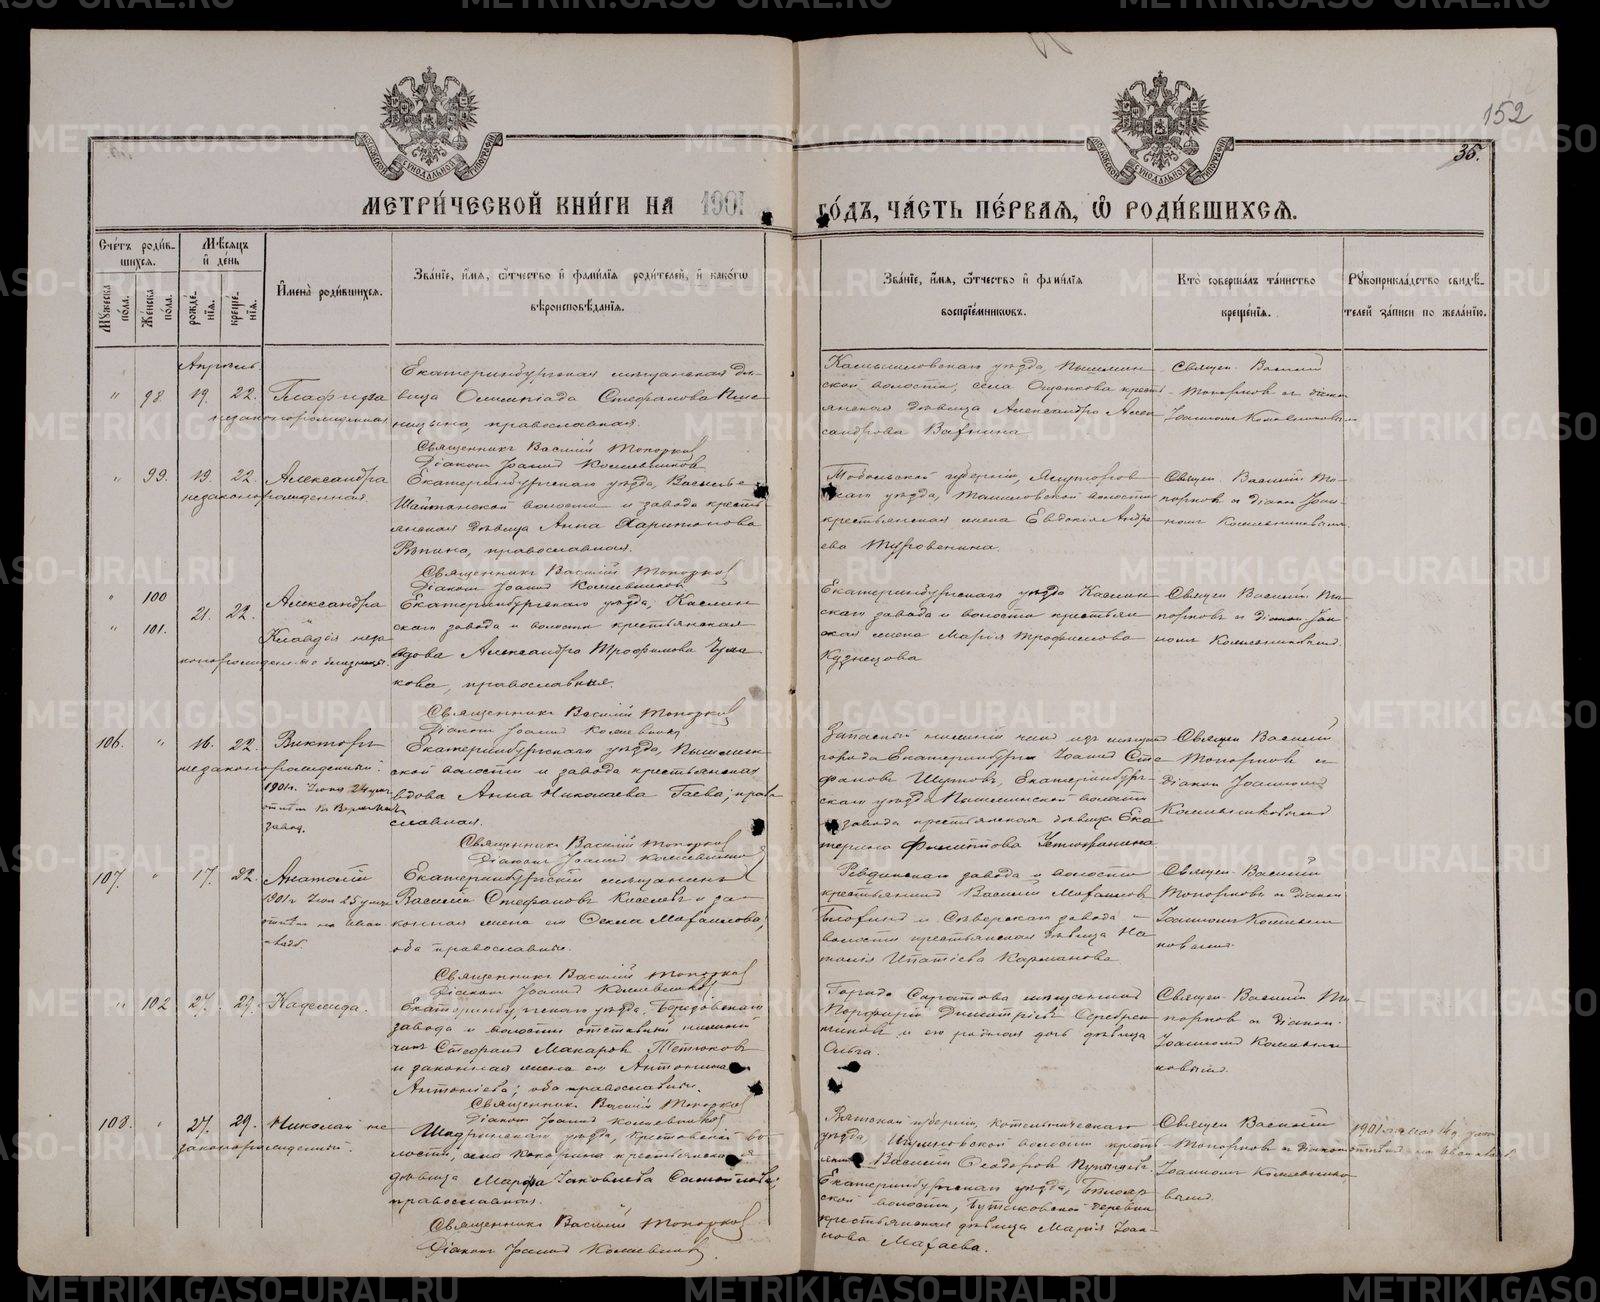 152
35.
МЕТРИ́ЧЕСКОЙ КНИ́ГИ НА 1901 ГО́ДЪ, ЧА́СТЬ ПЕ́РВАѦ, Ѡ РОДИ́ВШИХСѦ.
Сче́тъ роди́в-
шихсѧ.
Мѹжеска по́ла.
Же́нска по́ла.
Мѣсѧцъ
и де́нь
рожде́-
нїѧ.
креще́-
нїѧ.
Имена̀ роди́вшихсѧ.
Зва́нїе, и́мѧ, ѻ҆́тчество и фами́лїѧ роди́телей, и како́гѡ
вѣроисповѣ́данїѧ.
Зва́нїе, и́мѧ, ѻ҆́тчество и фами́лїѧ
воспрїе́мникѡвъ.
Кто̀ соверша́лъ та́инство
креще́нїѧ.
Рѹкоприкла́дство свидѣ́-
телей за́писи по жела́нїю.
Апрѣль
" 98 19. 22. Глафира
незаконнорожденная
Екатеринбургская мѣщанская дѣ-
вица Олимпіада Стефанова Пше-
ницына, православная.
Священникъ Василій Топорковъ
Діаконъ Іоаннъ Кожевниковъ
Камышловскаго уѣзда, Пышмин-
ской волости, села Ощепкова крест-
янская дѣвица Александра Алек
сандрова
Священ. Василій
Топорков и діакон
Іоанном Кожевниковым
" 99. 19. 22. Александра
незаконорожденная.
Екатеринбургскаго уѣзда, Васильево-
Шайтанской волости и завода кресть-
янская дѣвица Анна Харитонова
Рѣпина, православная.
Священникъ Василій Топорковъ
Діаконъ Іоаннъ Кожевниковъ
Тобольской губерніи, Ялуторов
скаго уѣзда, волости
крестьянская жена Евдокія Андре
ева
Священ. Василій То-
порков и діакон Іоан-
ном Кожевниковым
" 100
" 101. 21. 22. Александра
и
Клавдія неза
конорожденные близнецы.
Екатеринбургскаго уѣзда, Каслин
скаго завода и волости крестьянская
вдова Александра Трофимова Чума
кова, православная.
Священникъ Василій Топорковъ
Діаконъ Іоаннъ Кожевниковъ
Екатеринбургскаго уѣзда Каслин-
скаго завода и волости крестьян
ская жена Марія Трофимова
Кузнецова
Священ. Василій То-
порков и діакон Іоан-
ном Кожевниковым
106. " 16. 22. Викторъ
незаконорожденный.
1901 г. Іюня 24
завод.
Екатеринбургскаго уѣзда, Пышмин-
ской волости и завода крестьянская
вдова Анна Николаева Гаева; право
славная.
Священникъ Василій Топорковъ
Діаконъ Іоаннъ Кожевниковъ
Запасный нижній чин из мещан
города Екатеринбурга Іоанн Сте
фанов Шутов, Екатеринбург-
скаго уѣзда Пышминской волости
и завода крестьянская дѣвица Ека
терина Филиппова Устюжанина
Священ. Василій
Топорков и
діакон Іоанном
Кожевниковым
107. " 17. 22. Анатолій
1901 г. Іюня 25 умер
Екатеринбургскій мѣщанинъ
Василій Стефановъ Киселевъ и за-
конная жена его Ѳекла Макаилова;
оба православные.
Священникъ Василій Топорковъ
Діаконъ Іоаннъ Кожевниковъ
Ревдинскаго завода и волости
крестьянин Василій
и Сѣверскаго завода -
волости крестьянская дѣвица На
талія Ипатіева Карманова
Священ. Василій
Топорков и діакон
Іоанном Кожевни
ковым.
" 102 27. 29. Надежда.
Екатеринбургскаго уѣзда,
завода и волости отставной нижній
чинъ Стефанъ Макаров Тетюковъ
и законная жена его Антонина
Антоніева; оба православные.
Священникъ Василій Топорковъ
Діаконъ Іоаннъ Кожевниковъ
Города Саратова мѣщанин
Порфирій Димитріев Серебрен
ников и его родная дочь дѣвица
Ольга.
Священ. Василій То-
порков и діакон.
Іоанном Кожевни
ковым.
108. " 27. 29. Николай не
законорожденный.
Шадринскаго уѣзда, Крестовской во
лости, села Кокорина крестьянская
дѣвица Марѳа Іаковлева Самойлова,
православная.
Священникъ Василій Топорковъ
Діаконъ Іоаннъ Кожевниковъ
Вятской губерніи, Котельническаго
уѣзда, волости крест
янин Василій Ѳеодоров
Екатеринбургскаго уѣзда, Бѣлояр
ской волости, деревни
крестьянская дѣвица Марія Іоан-
нова
Священ. Василій
Топорков и діаконом
Іоанном Кожевнико
вым.
1901
METRIKI.GASO-URAL.RU